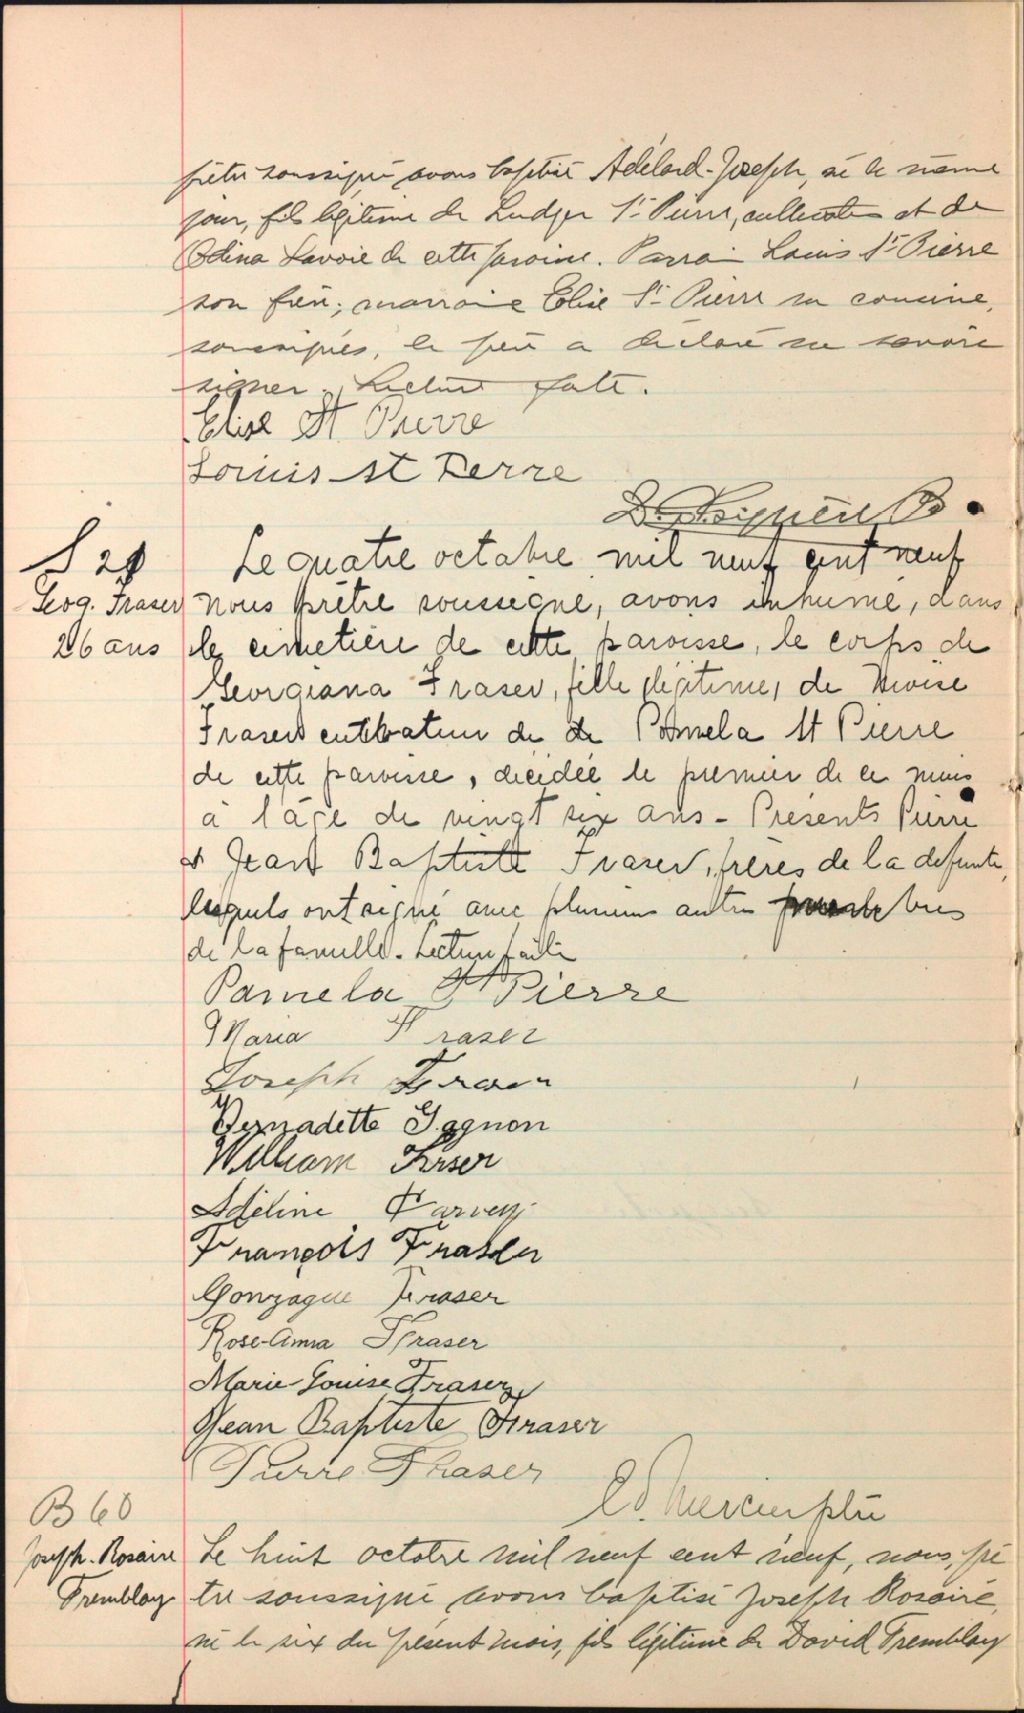 prêtre soussigné avons baptisé Adélard-Joseph, né le même
jour, fils légitime de Ludger St Pierre, cultivateur et de
Odina Savoie de cette paroisse. Parrain Louis St Pierre
son frère; marraine Elise St Pierre sa cousine,
soussignés, le père a déclaré ne savoir
signer. Lecture faite.
Elise St Pierre
Louis st Pierre
S 29
Geog. Fraser
26 ans
Le quatre octobre mil neuf cent neuf
nous prêtre soussigné, avons inhumé, dans
le cimetière de cette paroisse, le corps de
Georgiana Fraser, fille légitime, de Moïse
Fraser cultivateur de de Pamela St Pierre
de cette paroisse, décédée le premier de ce mois
à l'âge de vingt six ans - Présents Pierre
& Jean Baptiste Fraser, frères de la defunte,
lesquels ont signé avec plusieurs autres
de la famille. Lecture faite
Pamela St Pierre
Maria Fraser
Joseph Fraser
Bernadette Gagnon
William Fraser
Adéline
François Fraser
Gonzague Fraser
Rose-Anna Fraser
Marie-Louise Fraser
Jean Baptiste Fraser
Pierre Fraser
Ed. Mercier ptre
B 60
Joseph-Rosaire
Tremblay
Le huit octobre mil neuf cent neuf, nous, prê
tre soussigné avons baptisé Joseph Rosaire,
né le six du présent mois, fils légitime de David Tremblay